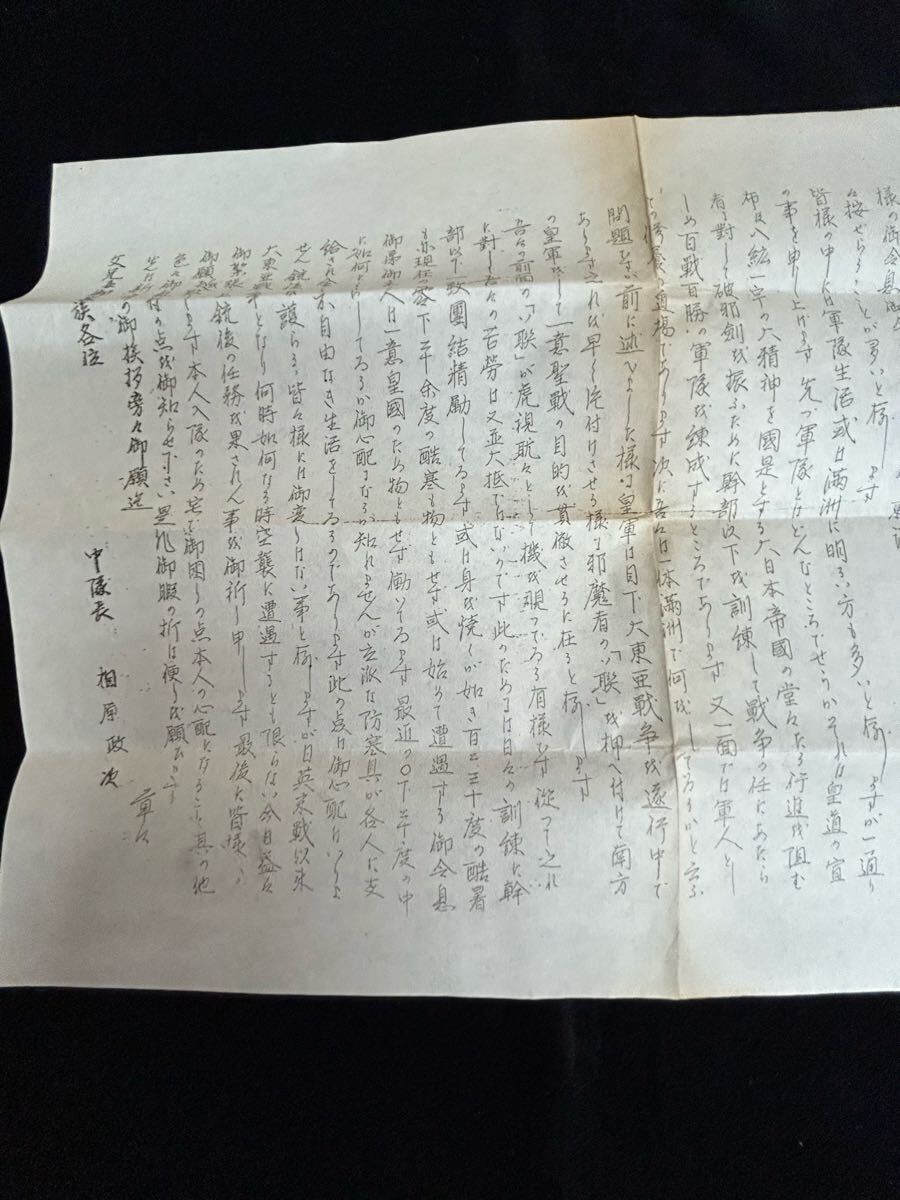 様の御令息
々按せらるゝことが多いと存じます
皆様の中には軍隊生活或は満洲に明るい方も多いと存じますが一通り
の事を申し上げます先づ軍隊とはどんなところでせうかそれは皇道の宣
布は八紘一宇の大精神を國是とする大日本帝國の堂々たる行進を阻む
者に對して破邪劍を振ふために幹部以下を訓練して戦争の任にあたら
しめ百戦百勝の軍隊を練成するところであります又一面では軍人とし
ての 道場であります次に吾々は一体満洲で何をしてゐるかと云ふ
問題 前に述べました様に皇軍は目下大東亜戦争を遂行中で
ありますこれを早く片付けさせる様に邪魔者の「ソ聯」を押へ付けて南方
の皇軍をして一意聖戦の目的を貫徹させるに在ると存じます
吾々の前面の「ソ聯」が虎視眈々として機を覗つてゐる有様です従つて之れ
に對し 々の苦労は又並大抵ではないのです此のためには日々の訓練に幹
部以下一致團結精励してゐます或は身を焼くが如き百二、三十度の酷暑
も亦現在の零下三十余度の酷寒も物ともせず或は始めて遭遇する御令息
御 人は一意皇國のため物ともせず働いてゐます最近の〇下三十度の中
に如何 してゐるか御心配なるか知れませんが立派な防寒具が各人に支
給され 不自由なき生活をしてゐるのであります此の点は御心配はいりま
せん銃後 護らるゝ皆々様には御変りはない事と存じますが日英米戦以来
大東亜戦争となり何時如何なる時空襲に遭遇するとも限らない今日益々
御緊張 銃後の任務を果されん事を御祈り申します最後に皆様に
御願 ます本人入隊のため宅で御困りの点本人の心配になること其の他
色々 の点を御知らせ下さい 御暇の折は便りを願ひます
先は の御挨拶旁々御願迄
草々
中隊長 相原政次
族各位